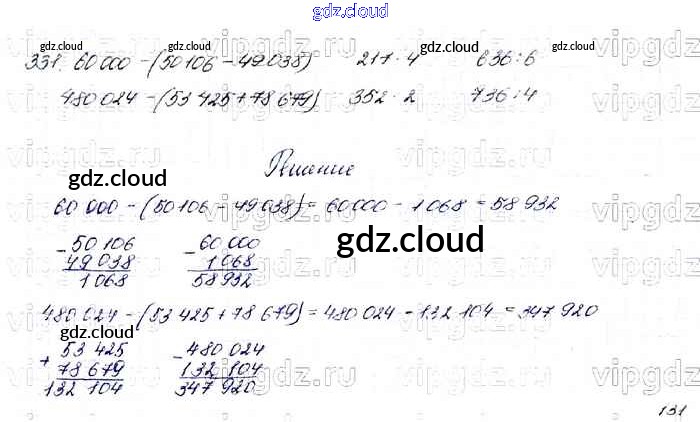 gdz.cloud
gdz.cloud gdz.cloud gdz.cloud
331. 60 000 - (50 106 - 49 038) 217 · 4 636 : 6
480 024 - (53 425 + 78 679) 352 · 2 736 : 4
vipgdz.ru vipgdz.ru vipgdz.ru
Решение
gdz.cloud
60 000 - (50 106 - 49 038) = 60 000 - 1 068 = 58 932
- 50 106 - 60 000
49 038 1 068
1 068 58 932
gdz.cloud
480 024 - (53 425 + 78 679) = 480 024 - 132 104 = 347 920
gdz.cloud
+ 53 425 - 480 024
78 679 132 104
132 104 347 920
vipgdz.ru vipgdz.ru
gdz.cloud gdz.cloud
131